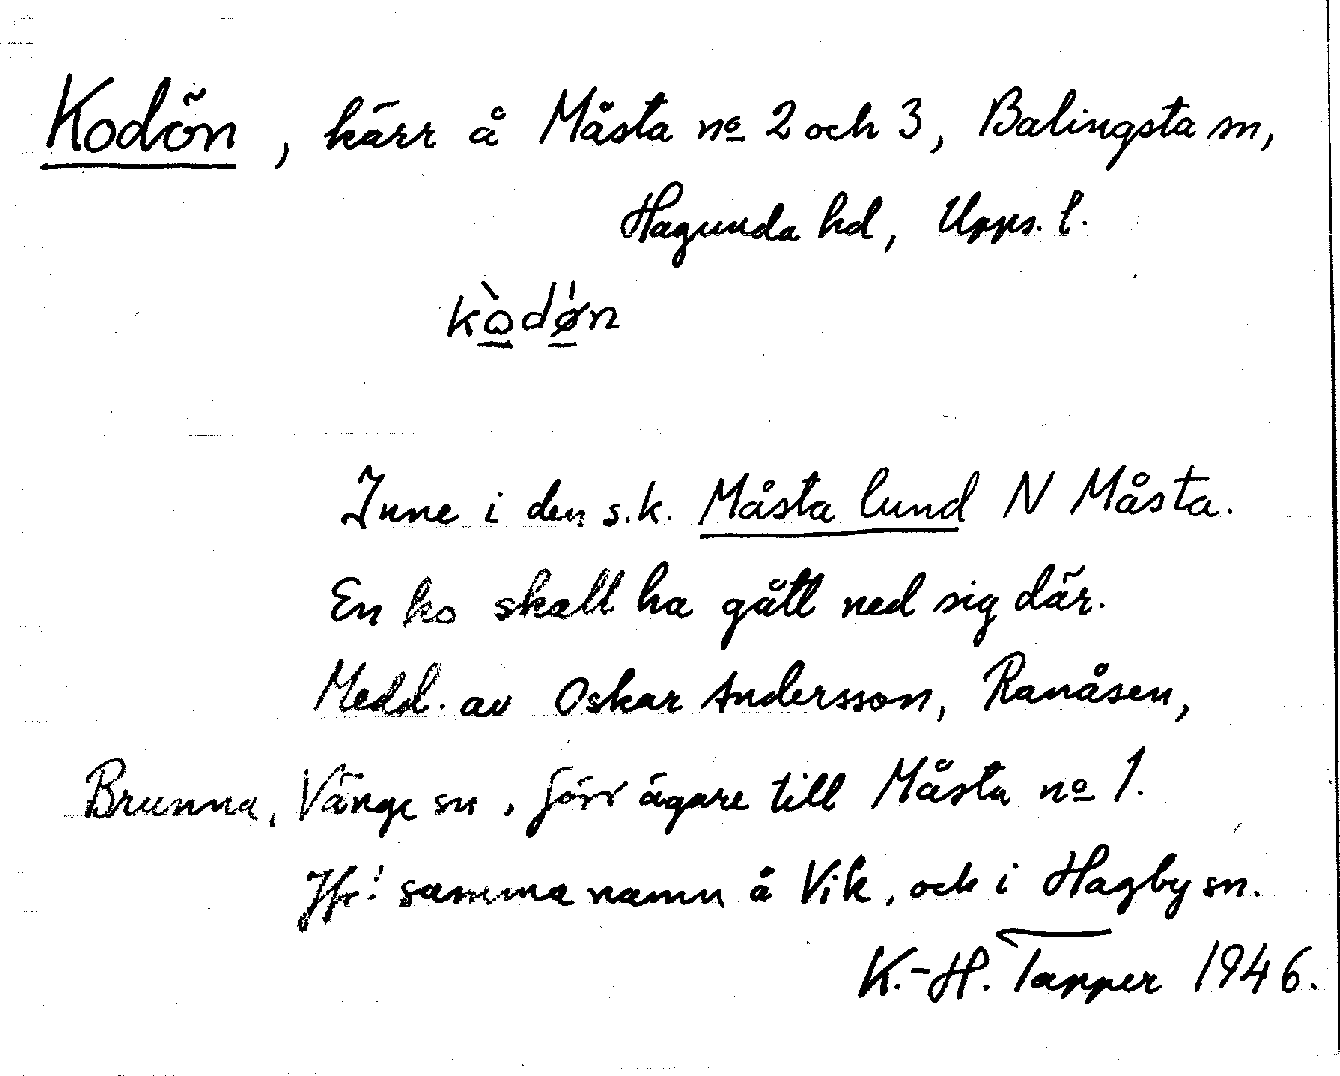 Kodön, kärr å Måsta nº 2 och 3, Balingsta sn,
Hagunda hd, Upps. l.
kò̱dø̱̍n
Inne i den s.k. Måsta lund N Måsta.
En ko skall ha gått ned sig där.
Medd. av Oskar Andersson, Ranåsen,
Brunna, Vänge sn, förr ägare till Måsta nº 1.
Jfr! samma namn å Vik, och i Hagby sn.
K.-H. Tapper 1946.